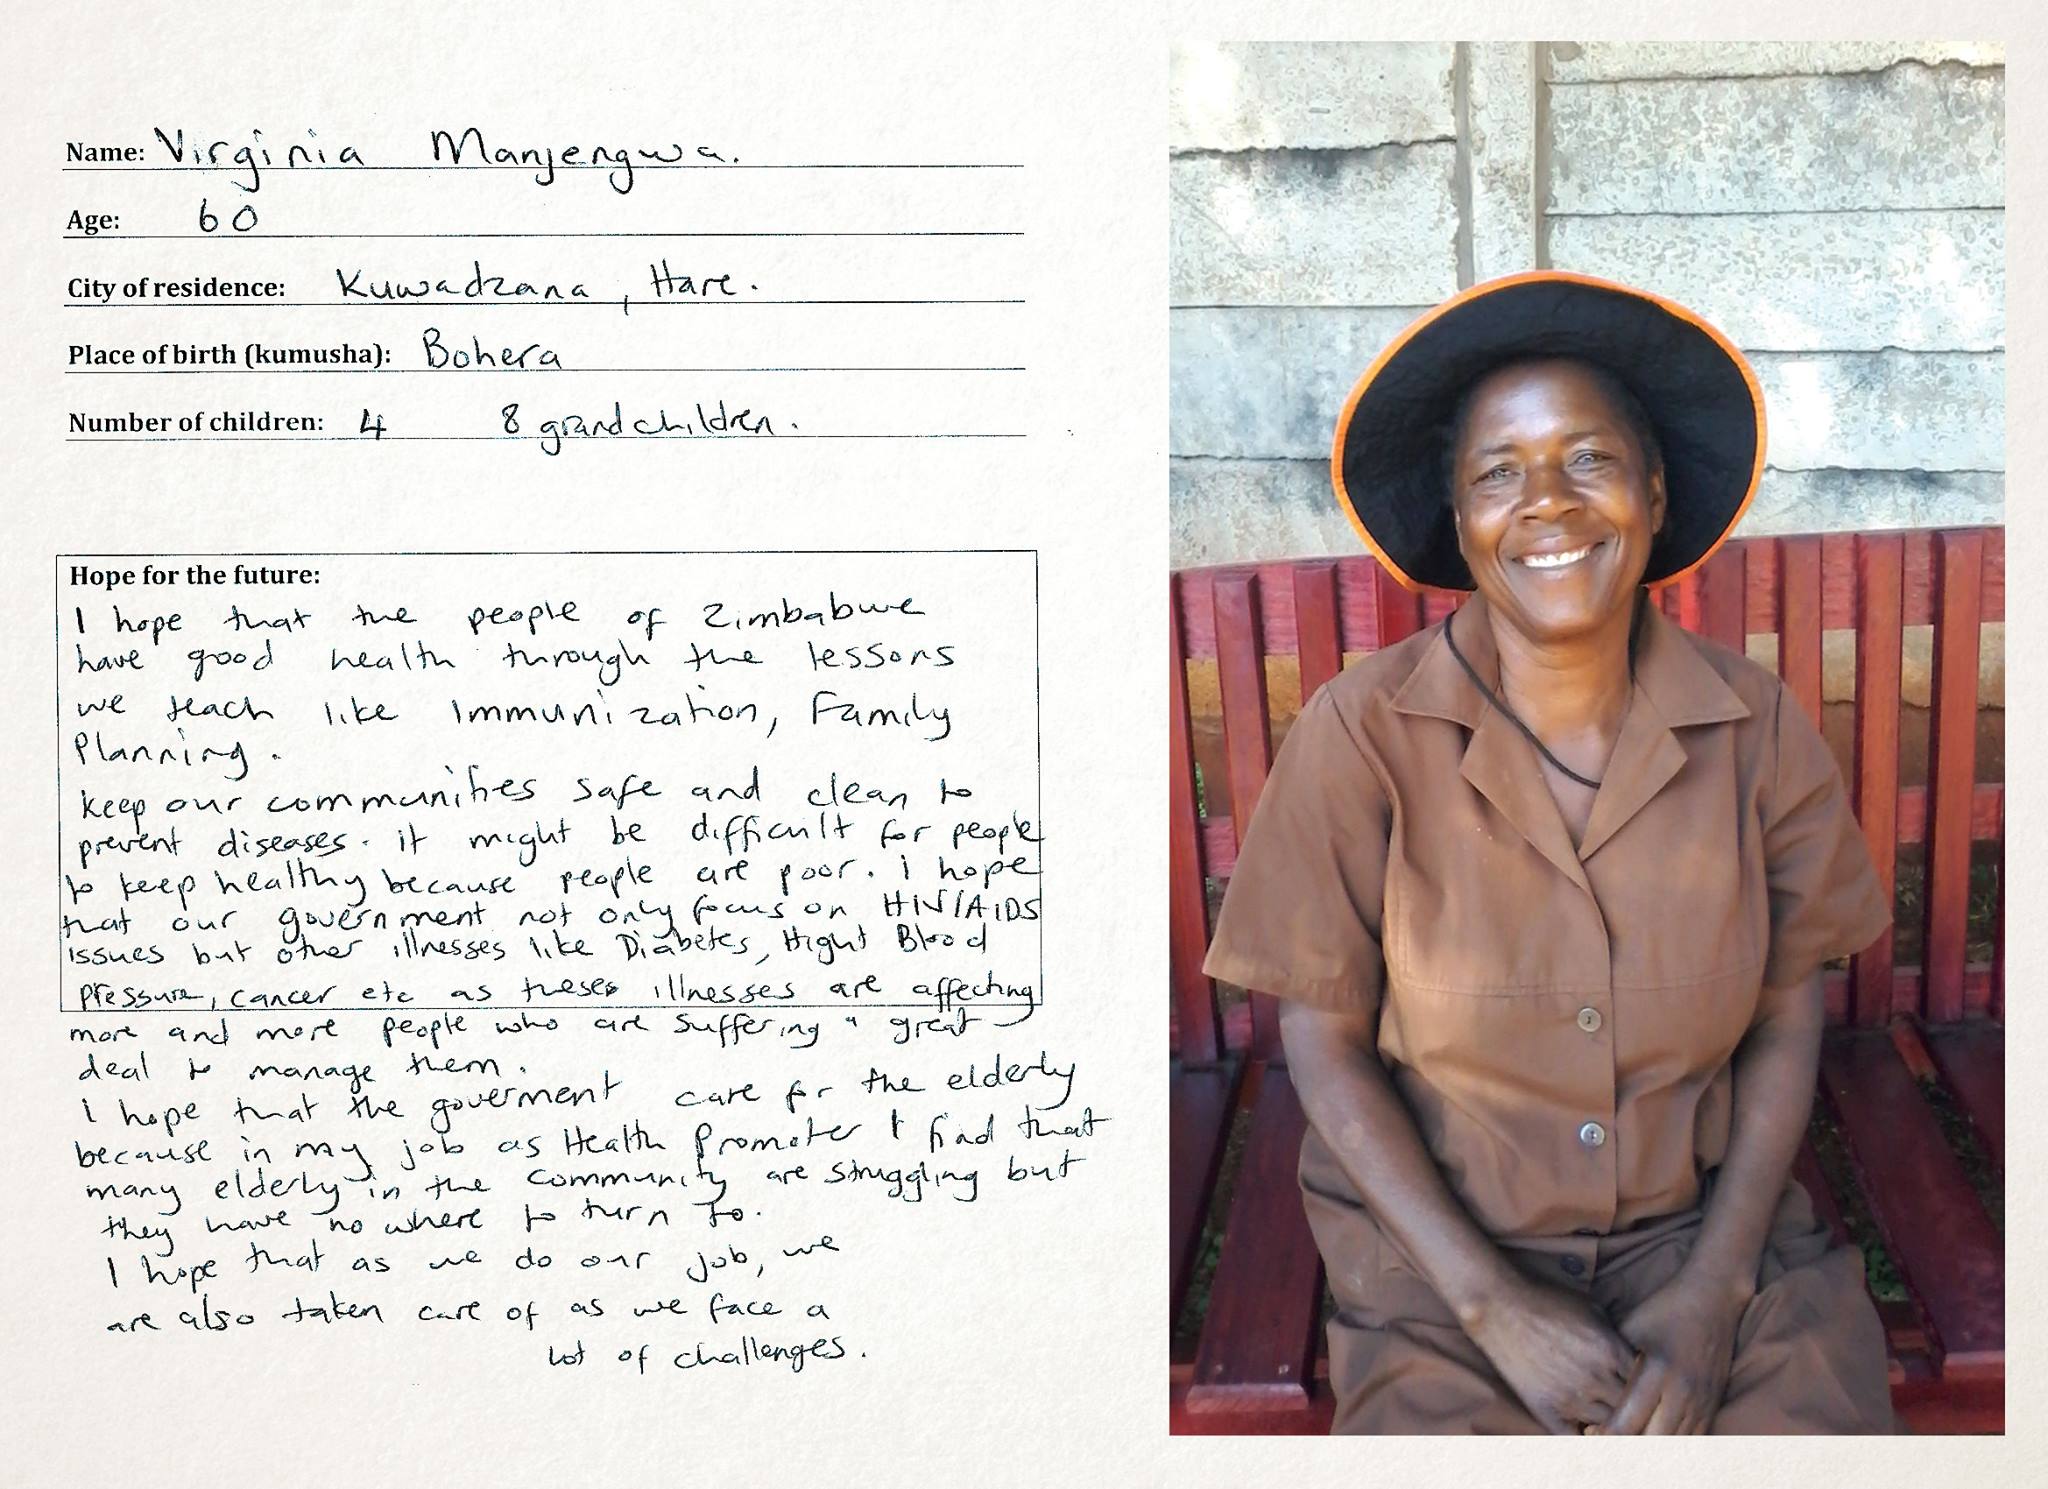 Name: Virginia Manjengwa.
Age: 60
City of residence: Kuwadzana, Hare.
Place of birth (kumusha): Bohera
Number of children: 4 8 grandchildren.
Hope for the future:
I hope that the people of Zimbabwe
have good health through the lessons
we teach like Immunization, Family
Planning.
keep our communities safe and clean to
prevent diseases. it might be difficult for people
to keep healthy because people are poor. I hope
that our government not only focus on HIV/AIDS
issues but other illnesses like Diabetes, Hight Blood
pressure, cancer etc as these illnesses are affecting
more and more people who are suffering a great
deal to manage them.
I hope that the goverment care for the elderly
because in my job as Health Promoter I find that
many elderly in the community are struggling but
they have no where to turn to.
I hope that as we do our job, we
are also taken care of as we face a
lot of challenges.